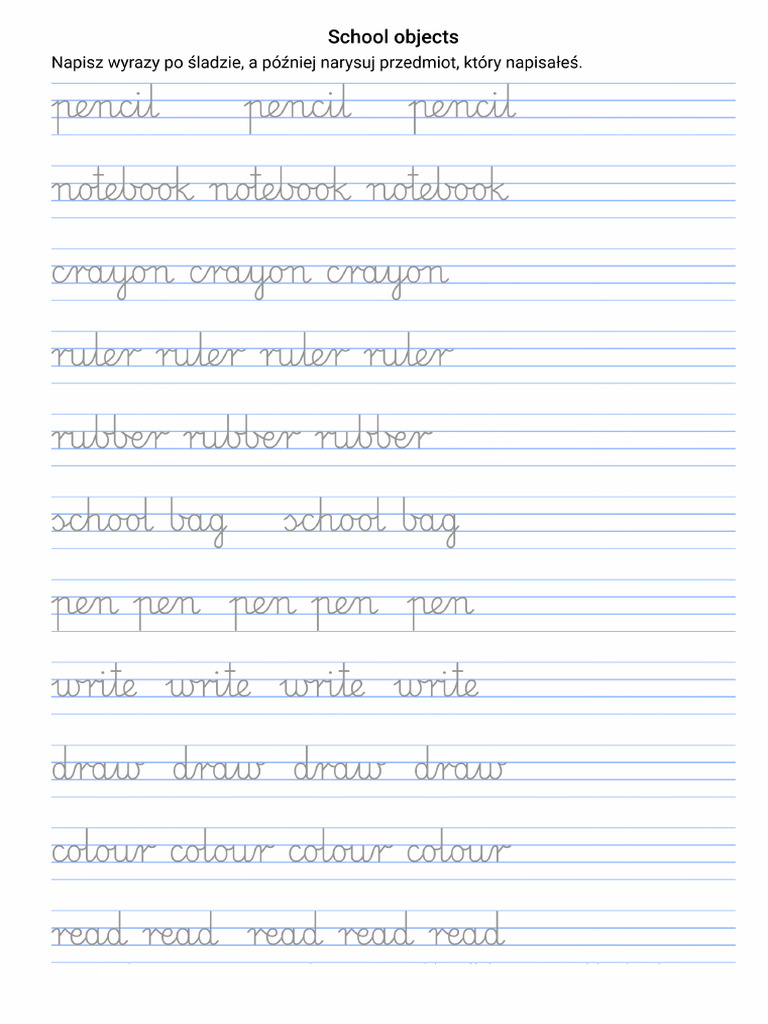 School objects
Napisz wyrazy po śladzie, a później narysuj przedmiot, który napisałeś.
pencil pencil pencil
notebook notebook notebook
crayon crayon crayon
ruler ruler ruler ruler
rubber rubber rubber
school bag school bag
pen pen pen pen pen
write write write write
draw draw draw draw
colour colour colour colour
read read read read read